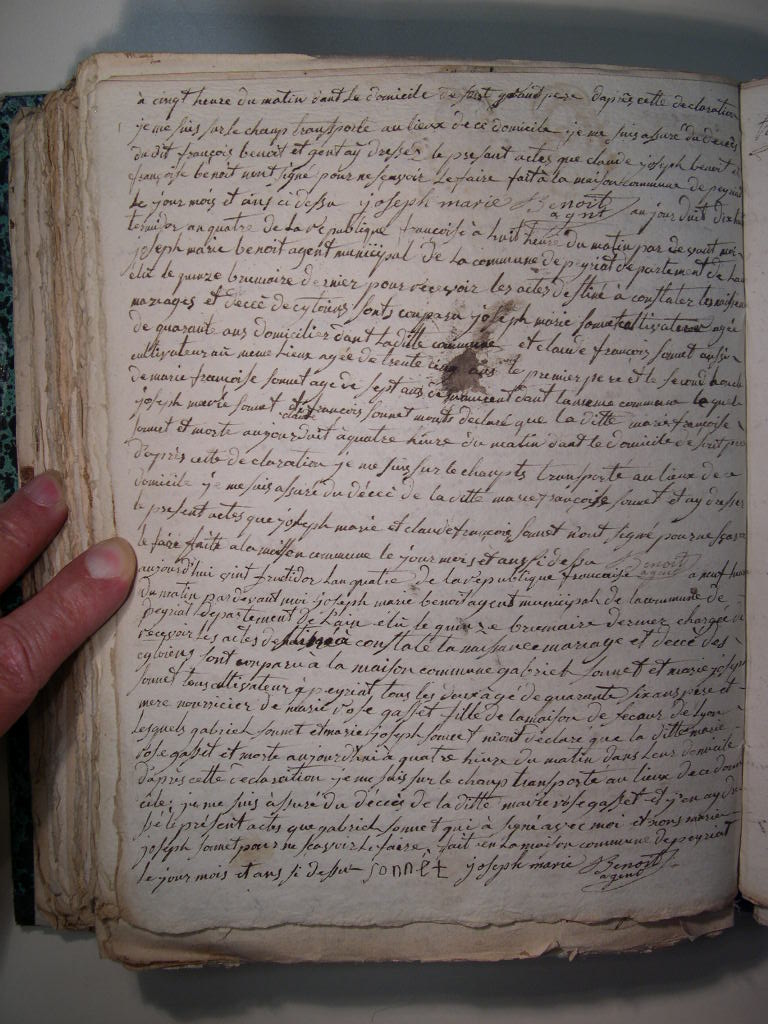 à cinqt heure du matin dant le domicile de grand pere daprès cette declaration
je me suis sur le champ transporte au lieux de ce domicile je me suis assuré du décès
du dit françois benoit et gent ay dressé le presant actes que claude joseph benoit et
françoise benoit nont signé pour ne scavoir le faire fait à la maison commune de peyriat
le jour mois et ans ci dessu joseph marie Benoit agent aujourduit dix huit
termidor an quatre de la république francoise à huit heure du matin par devant moi
joseph marie benoit agent municipal de la commune de peyriat departement de l'ain
elu le quinze brumaire dernier pour recevoir les actes destiné à constater les naissence
mariages et décé de cytoiens sont comparu joseph marie sonnet cultivateur agée
de quarante ans domicilier dant la ditte commune et claude françois sonnet aussi
cultivateur au meme lieux agée de trente cinq ans le premier pere et le second oncle
de marie françoise sonnet age de sept ans dant la meme commune le quels
joseph marie sonnet et claude françois sonnet monts déclaré que la ditte marie françoise
sonnet et morte aujourduit à quatre heure du matin dant le domicile de pere
d'après cette declaration je me suis sur le champts transporte au lieux de ce
domicile je me suis assuré du décé de la ditte marie françoise sonnet et ay dresser
le present actes que joseph marie et claude françois sonnet n'ont signé pour ne scavoir
le faire faite a la maison commune le jour mois et ans si dessu Benoit agent
aujourd'hui vint fructidor lan quatre de la république francaise a neuf heure
du matin par devant moi joseph marie benoit agent municipal de la commune de
peyriat département de l'ain elu le quinze brumaire dernier chargée de
recevoir les actes destiné à constaté la naissance mariage et décé des
cytoiens sont comparu à la maison commune gabriel sonnet et marie joseph
sonnet tous cultivateur à peyriat tous les deux agé de quarante six ans père et
mere nourricier de marie rose gasset fille de la maison de secour de lyon
lesquels gabriel sonnet et marie joseph sonnet m'ont déclaré que la ditte marie
rose gasset et morte aujourd'hui à quatre heure du matin dans leur domicile
d'après cette declaration je me suis sur le champ transporte au lieux de ce domi
cile; je me suis assuré du décès de la ditte marie rose gasset et j'en ay dre
ssé le présent actes que gabriel sonnet qui a signé avec moi et non marie
joseph sonnet pour ne scavoir le faire fait en la maison commune de peyriat
le jour mois et ans si dessu sonnet joseph marie Benoit agent